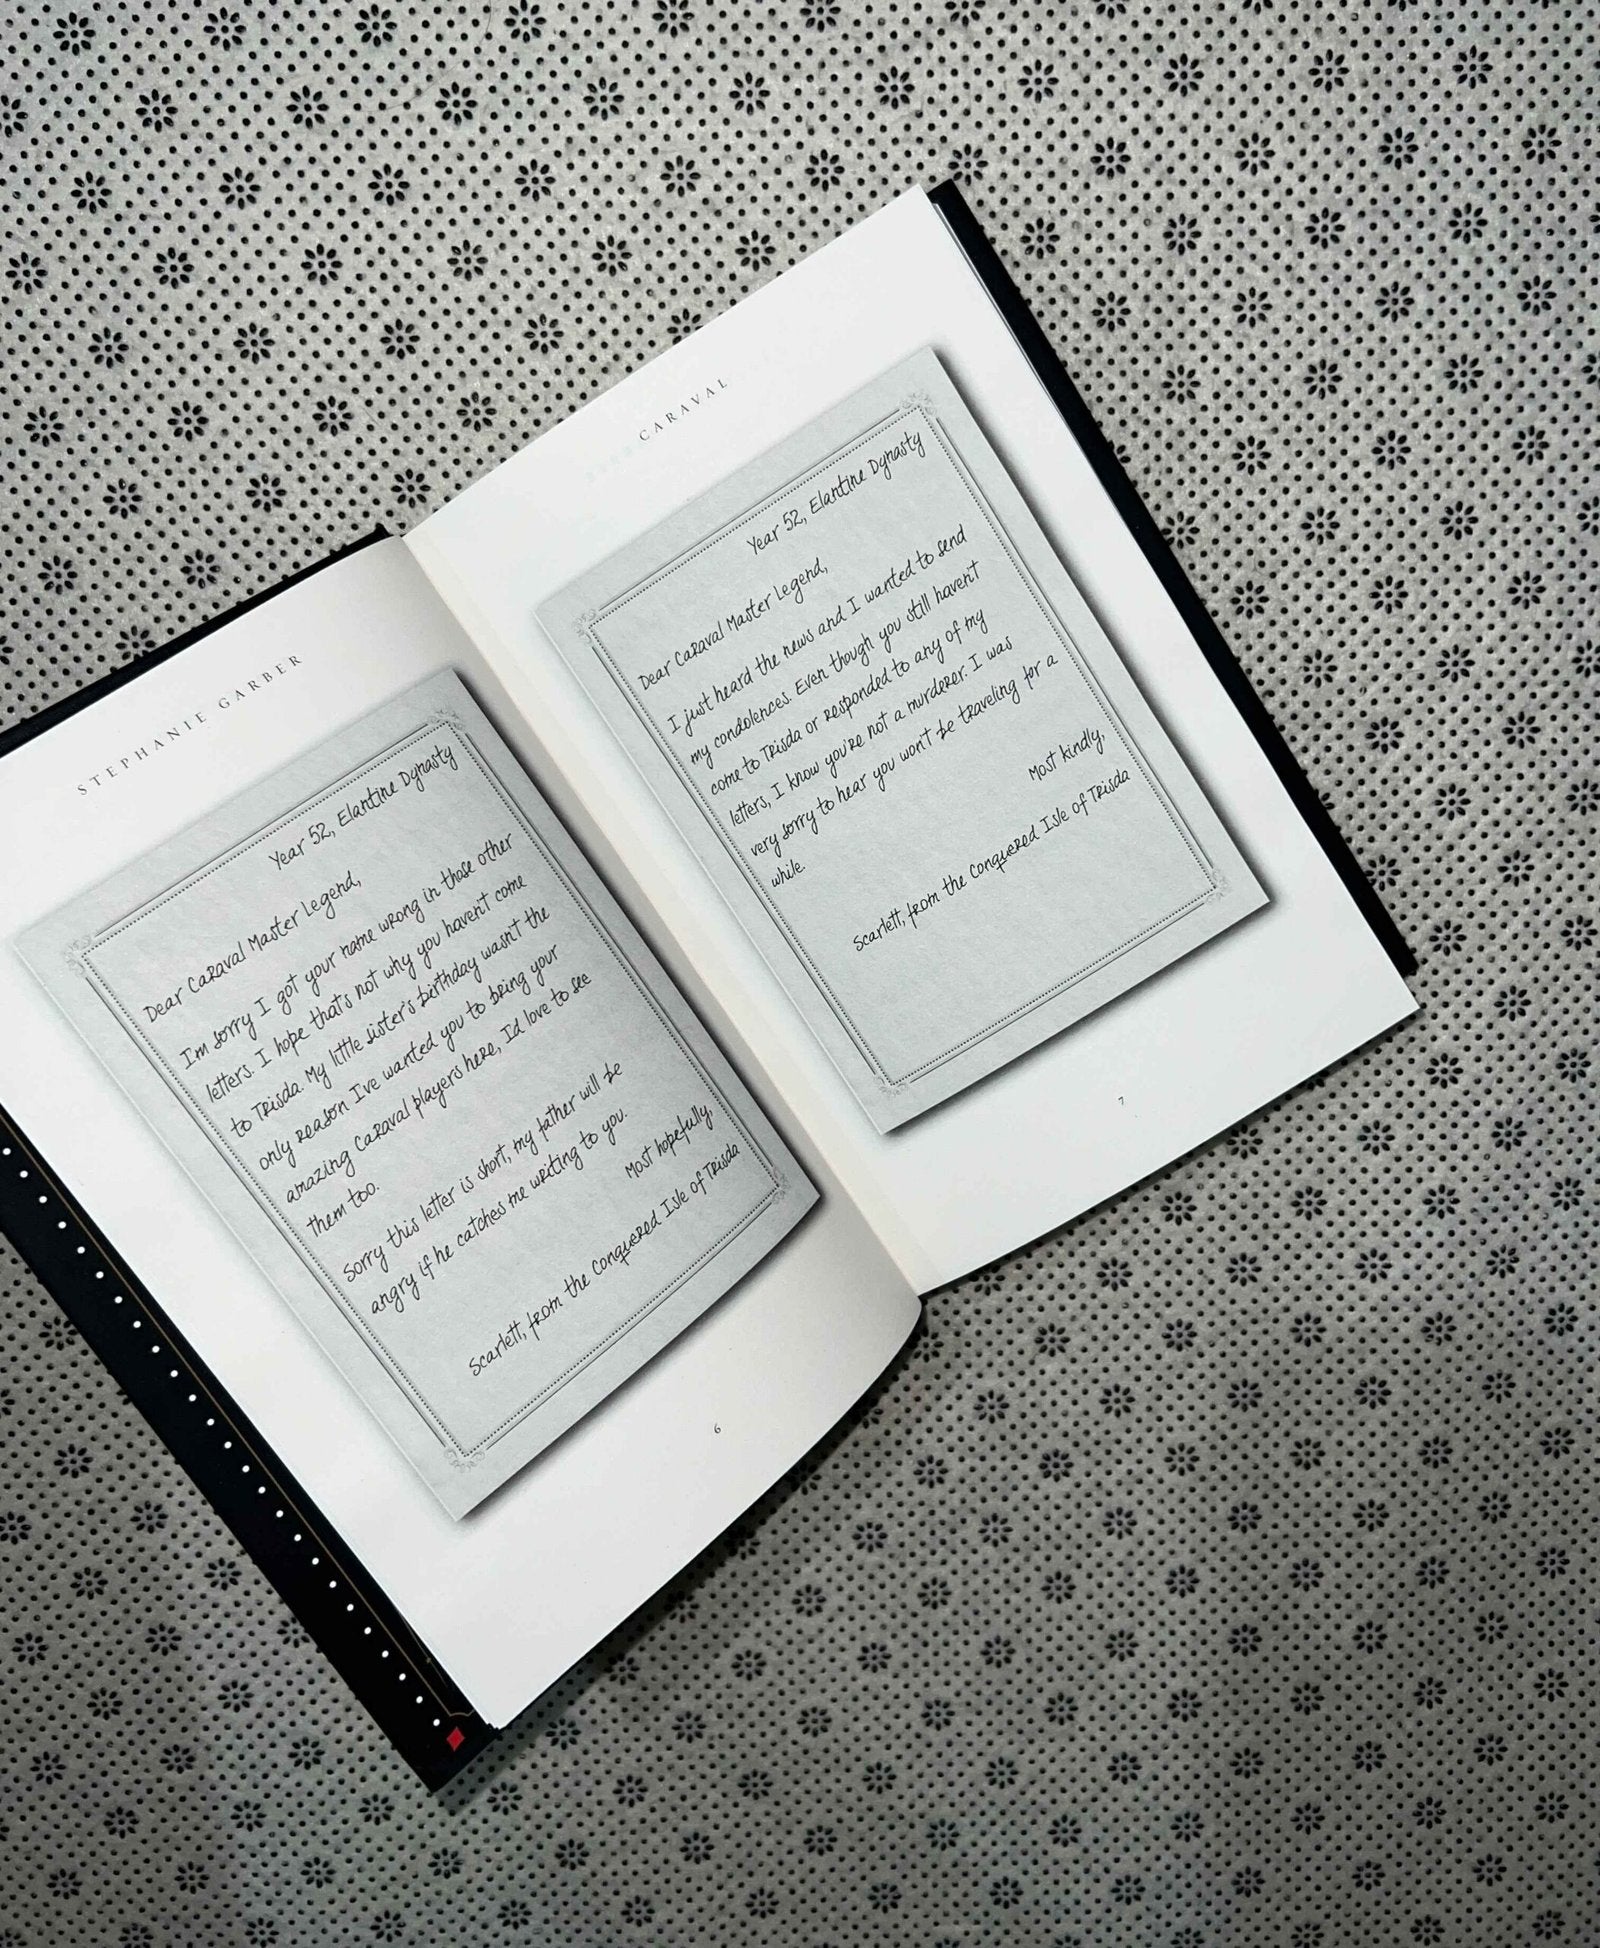 STEPHANIE GARBER
Year 52, Elantine Dynasty
Dear Caraval Master Legend,
I'm sorry I got your name wrong in those other
letters. I hope that's not why you haven't come
to Trisda. My little sister's birthday wasn't the
only reason I've wanted you to bring your
amazing Caraval players here, I'd love to see
them too.
Sorry this letter is short, my father will be
angry if he catches me writing to you.
Most hopefully,
Scarlett, from the Conquered Isle of Trisda
6
CARAVAL
Year 52, Elantine Dynasty
Dear Caraval Master Legend,
I just heard the news and I wanted to send
my condolences. Even though you still haven't
come to Trisda or responded to any of my
letters, I know you're not a murderer. I was
very sorry to hear you won't be traveling for a
while.
Most kindly,
Scarlett, from the Conquered Isle of Trisda
7